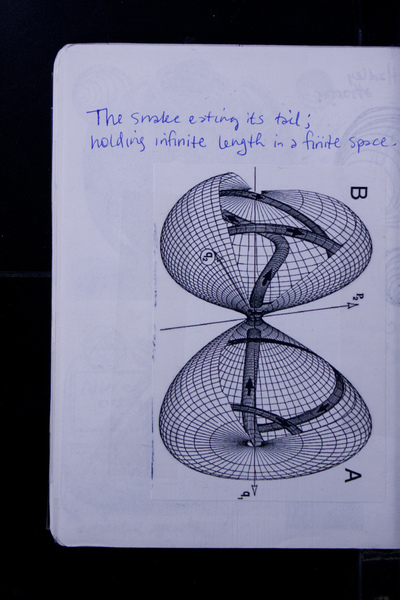 The snake eating its tail;
holding infinite length in a finite space.
B
q₂
P₂
A
q₁